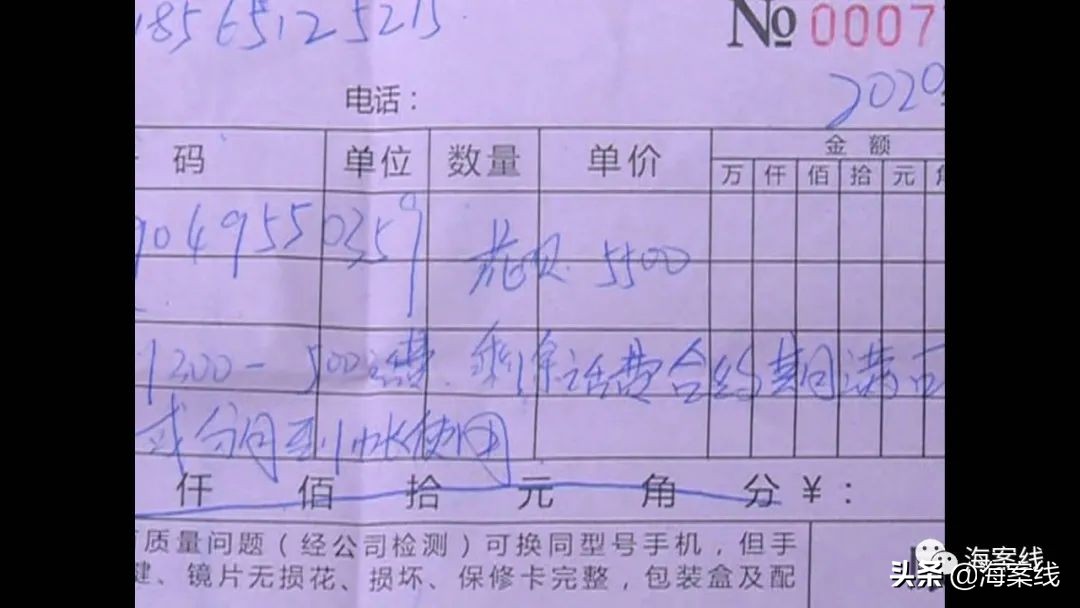 18565125215
№ 00077
电话：
2020
码 单位 数量 单价 金 额
万 仟 佰 拾 元 角
9049550359
花呗 5500
1200-500话费 剩除话费合约期满可
或分月到帐使用
仟 佰 拾 元 角 分 ¥：
质量问题（经公司检测）可换同型号手机，但手
、镜片无损花、损坏、保修卡完整，包装盒及配
海案线
头条 @海案线